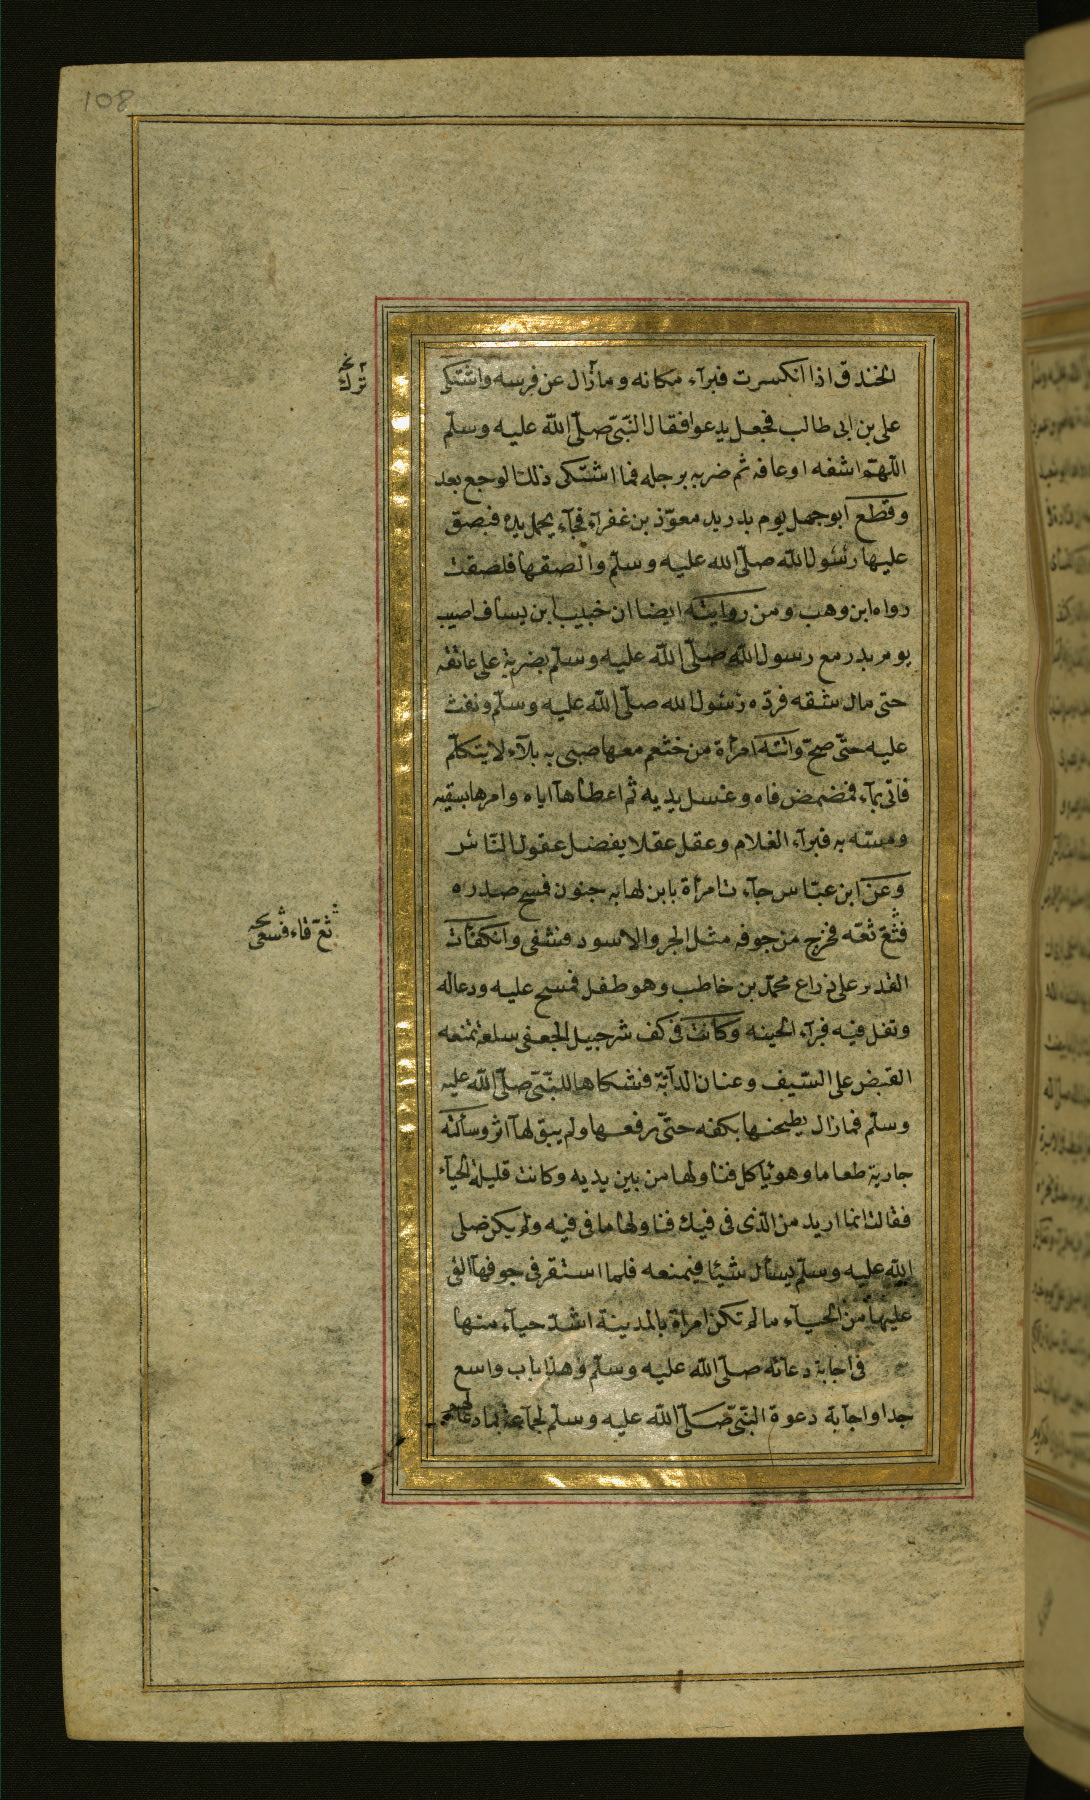 108
الخندق اذا انكسرت فبرآء مكانه ومازال عن فرسه واشتكى
على بن ابى طالب فجعل يدعوا فقال النّبىّ صلّى اللّه عليه وسلّم
اللّهمّ اشفه اوعافه ثم ضربه برجله فما اشتكى ذلك الوجع بعد
وقطع ابوجهل يوم بدر يد معوّذ بن عفرآء فجآء يحمل يده فبصق
عليها رسُول اللّه صلّى اللّه عليه وسلّم والصقها فلصقت
رواه ابن وهب ومن روايته ايضا ان خبيب ابن يساف اصيب
يوم بدر مع رسول اللّه صلّى اللّه عليه وسلّم بضربة على عاتقه
حتى مال شقه فردّه رسُول اللّه صلّى اللّه عليه وسلّم ونفث
عليه حتّى صحّ واتته امرأة من خثعم معها صبى به بلآء لا يتكلّم
فاتى بمآء فمضمض فاه وغسل يديه ثم اعطاها اياه وامرها بسقيه
ومسّه به فبرآء الغلام وعقل عقلا يفضل عقول النّاس
وعن ابن عبّاس جآءت امرأة بابن لها به جنون فمسح صدره
فثعّ ثعّه فخرج من جوفه مثل الجرو الاسود فشفى وانكفأت
القدر على ذراع محمّد بن حاطب وهو طفل فمسح عليه ودعاله
وتفل فيه فبرآء الحينه وكانت فى كف شرجبيل الجعفى سلعة تمنعه
القبض على السّيف وعنان الدآبّة فشكاها للنّبىّ صلّى اللّه عليه
وسلّم فمازال يطحنها بكفه حتّى رفعها ولم يبق لها اثر وسألته
جارية طعاما وهو يأكل فناولها من بين يديه وكانت قليلة الحيآء
فقالت انما اريد من الّذى فى فيك فناولها ما فى فيه ولم يكن صلى
اللّه عليه وسلّم يسأل شيئا فيمنعه فلما استقر فى جوفها القى
عليها من الحيآء مالم تكن امرأة بالمدينة اشدّ حيآء منها
فى اجابة دعائه صلّى اللّه عليه وسلّم وهذا باب واسع
جدا واجابة دعوة النّبىّ صلّى اللّه عليه وسلّم لجماعة بما دعا لهم
ثعّ قاء